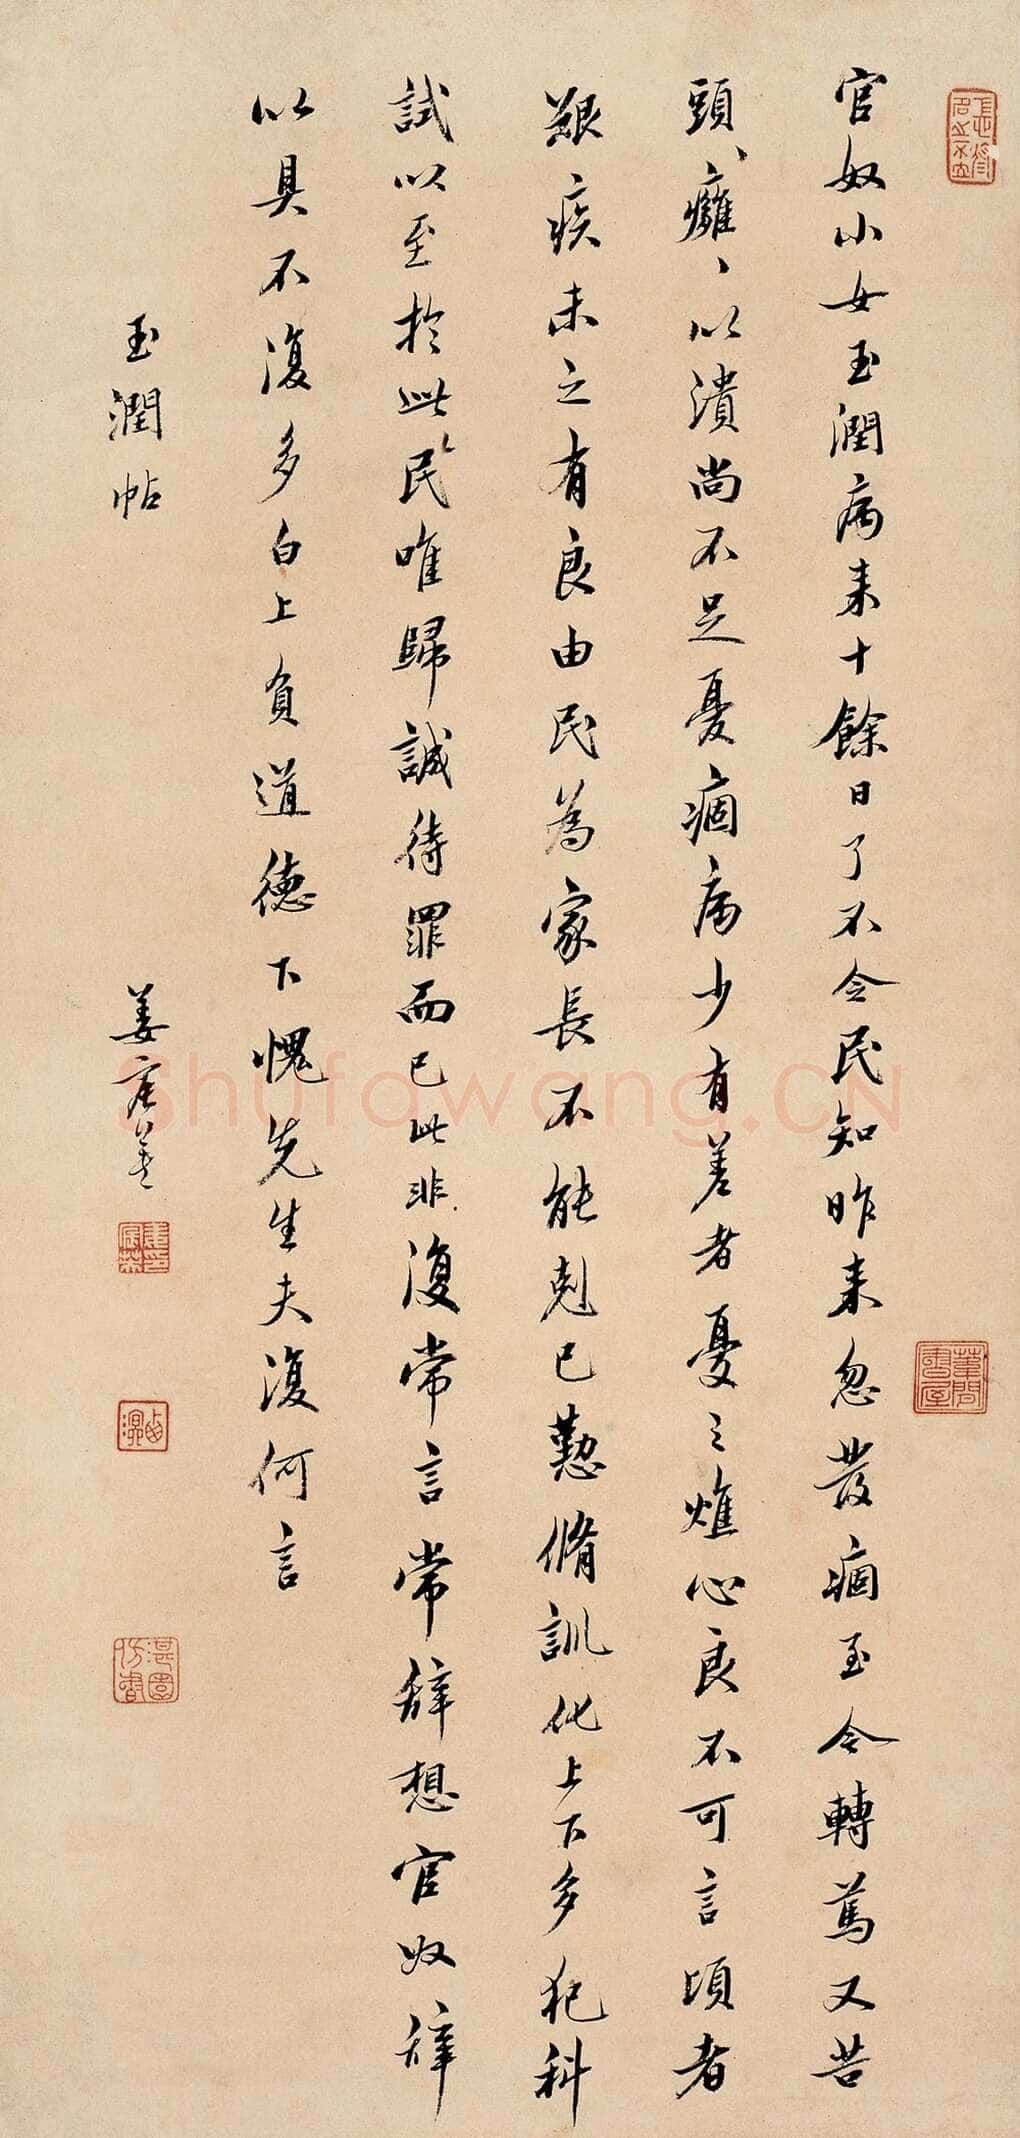 官奴小女玉潤病来十餘日了不令民知昨来忽發痼至今轉篤又苦
頭、癰、以潰尚不足憂痼病少有差者憂之燋心良不可言頃者
艱疾未之有良由民為家長不能剋己懃脩訓化上下多犯科
試以至於此民唯歸誠待罪而已此非復常言常辭想官奴辭
以具不復多白上負道德下愧先生夫復何言
玉潤帖
姜宸英
葦間書屋
西溟
湛園仿書
Shufawang.CN